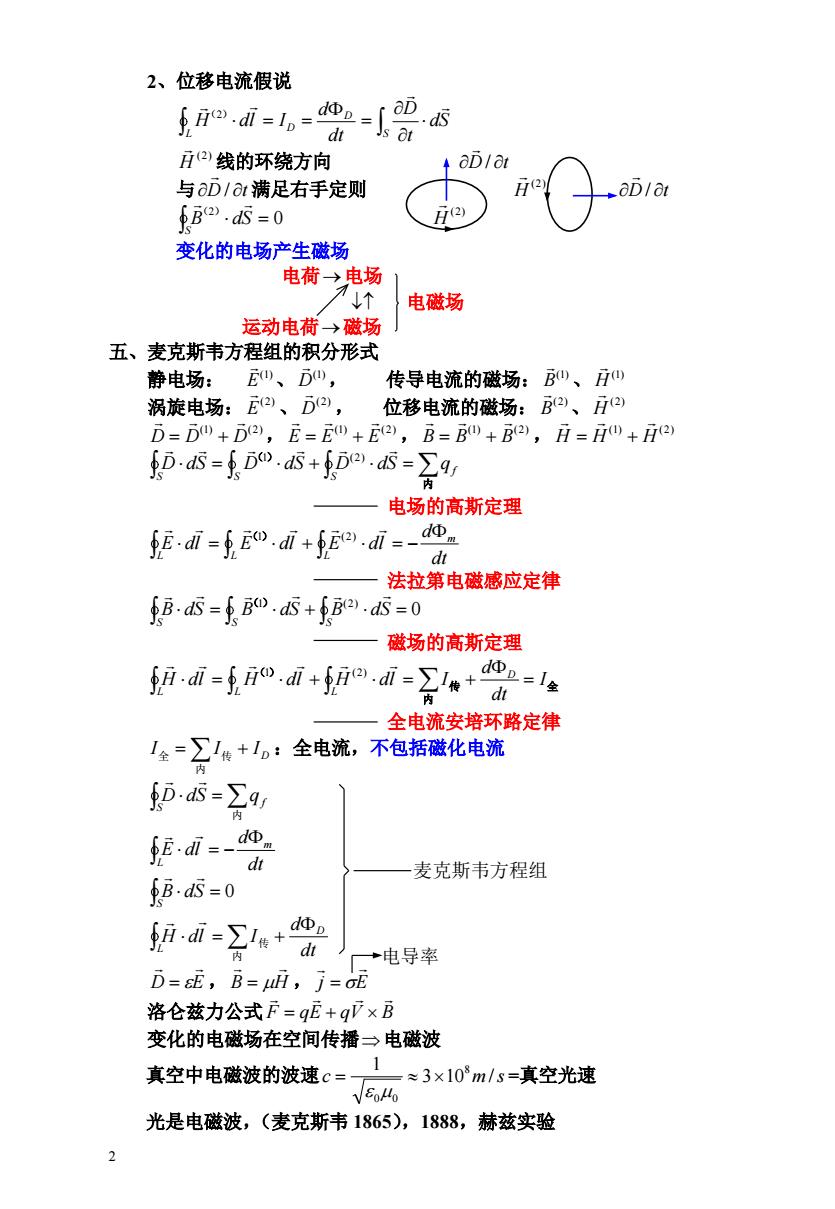 2、位移电流假说
∮_L H⃗^(2)·dl⃗ = I_D = dΦ_D/dt = ∫_S ∂D⃗/∂t·dS⃗
H⃗^(2) 线的环绕方向
与∂D⃗/∂t 满足右手定则
∂D⃗/∂t
H⃗^(2)
H⃗^(2)
∂D⃗/∂t
∮_S B⃗^(2)·dS⃗ = 0
变化的电场产生磁场
电荷→电场
↓↑ 电磁场
运动电荷→磁场
五、麦克斯韦方程组的积分形式
静电场: E⃗^(1)、D⃗^(1), 传导电流的磁场: B⃗^(1)、H⃗^(1)
涡旋电场: E⃗^(2)、D⃗^(2), 位移电流的磁场: B⃗^(2)、H⃗^(2)
D⃗ = D⃗^(1) + D⃗^(2), E⃗ = E⃗^(1) + E⃗^(2), B⃗ = B⃗^(1) + B⃗^(2), H⃗ = H⃗^(1) + H⃗^(2)
∮_S D⃗·dS⃗ = ∮_S D⃗^(1)·dS⃗ + ∮_S D⃗^(2)·dS⃗ = ∑_内 q_f
——— 电场的高斯定理
∮_L E⃗·dl⃗ = ∮_L E⃗^(1)·dl⃗ + ∮_L E⃗^(2)·dl⃗ = −dΦ_m/dt
——— 法拉第电磁感应定律
∮_S B⃗·dS⃗ = ∮_S B⃗^(1)·dS⃗ + ∮_S B⃗^(2)·dS⃗ = 0
——— 磁场的高斯定理
∮_L H⃗·dl⃗ = ∮_L H⃗^(1)·dl⃗ + ∮_L H⃗^(2)·dl⃗ = ∑_内 I_传 + dΦ_D/dt = I_全
——— 全电流安培环路定律
I_全 = ∑_内 I_传 + I_D:全电流,不包括磁化电流
∮_S D⃗·dS⃗ = ∑_内 q_f
∮_L E⃗·dl⃗ = −dΦ_m/dt
———麦克斯韦方程组
∮_S B⃗·dS⃗ = 0
∮_L H⃗·dl⃗ = ∑_内 I_传 + dΦ_D/dt
电导率
D⃗ = εE⃗, B⃗ = μH⃗, j⃗ = σE⃗
洛仑兹力公式 F⃗ = qE⃗ + qV⃗ × B⃗
变化的电磁场在空间传播⇒电磁波
真空中电磁波的波速 c = 1/√(ε₀μ₀) ≈ 3×10⁸ m/s =真空光速
光是电磁波,(麦克斯韦 1865),1888,赫兹实验
2